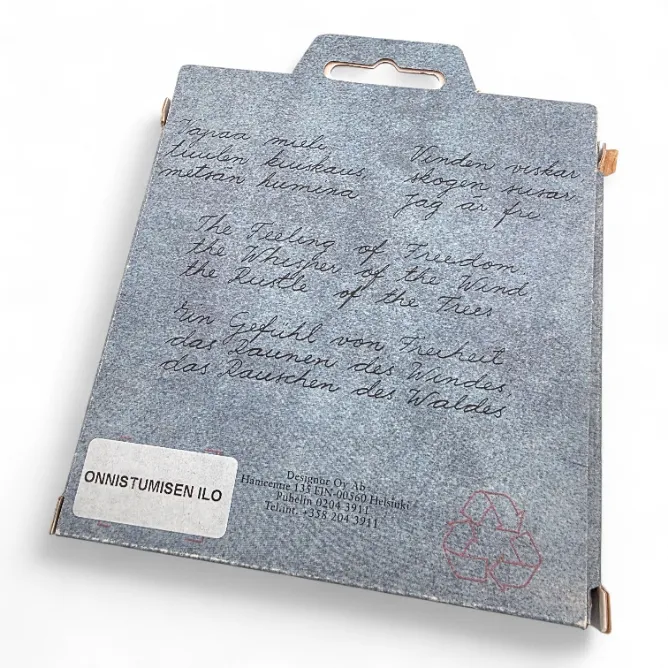 Vapaa mieli
tuulen kuiskaus
metsän humina
Vinden viskar
skogen susar
Jag är fri
The Feeling of Freedom
the Whisper of the Wind
the Rustle of the Trees
Ein Gefühl von Freiheit
das Raunen des Windes,
das Rauschen des Waldes
ONNISTUMISEN ILO
Designor Oy Ab
Hämeentie 135 FIN-00560 Helsinki
Puhelin 0204 3911
Tel.int. +358 204 3911